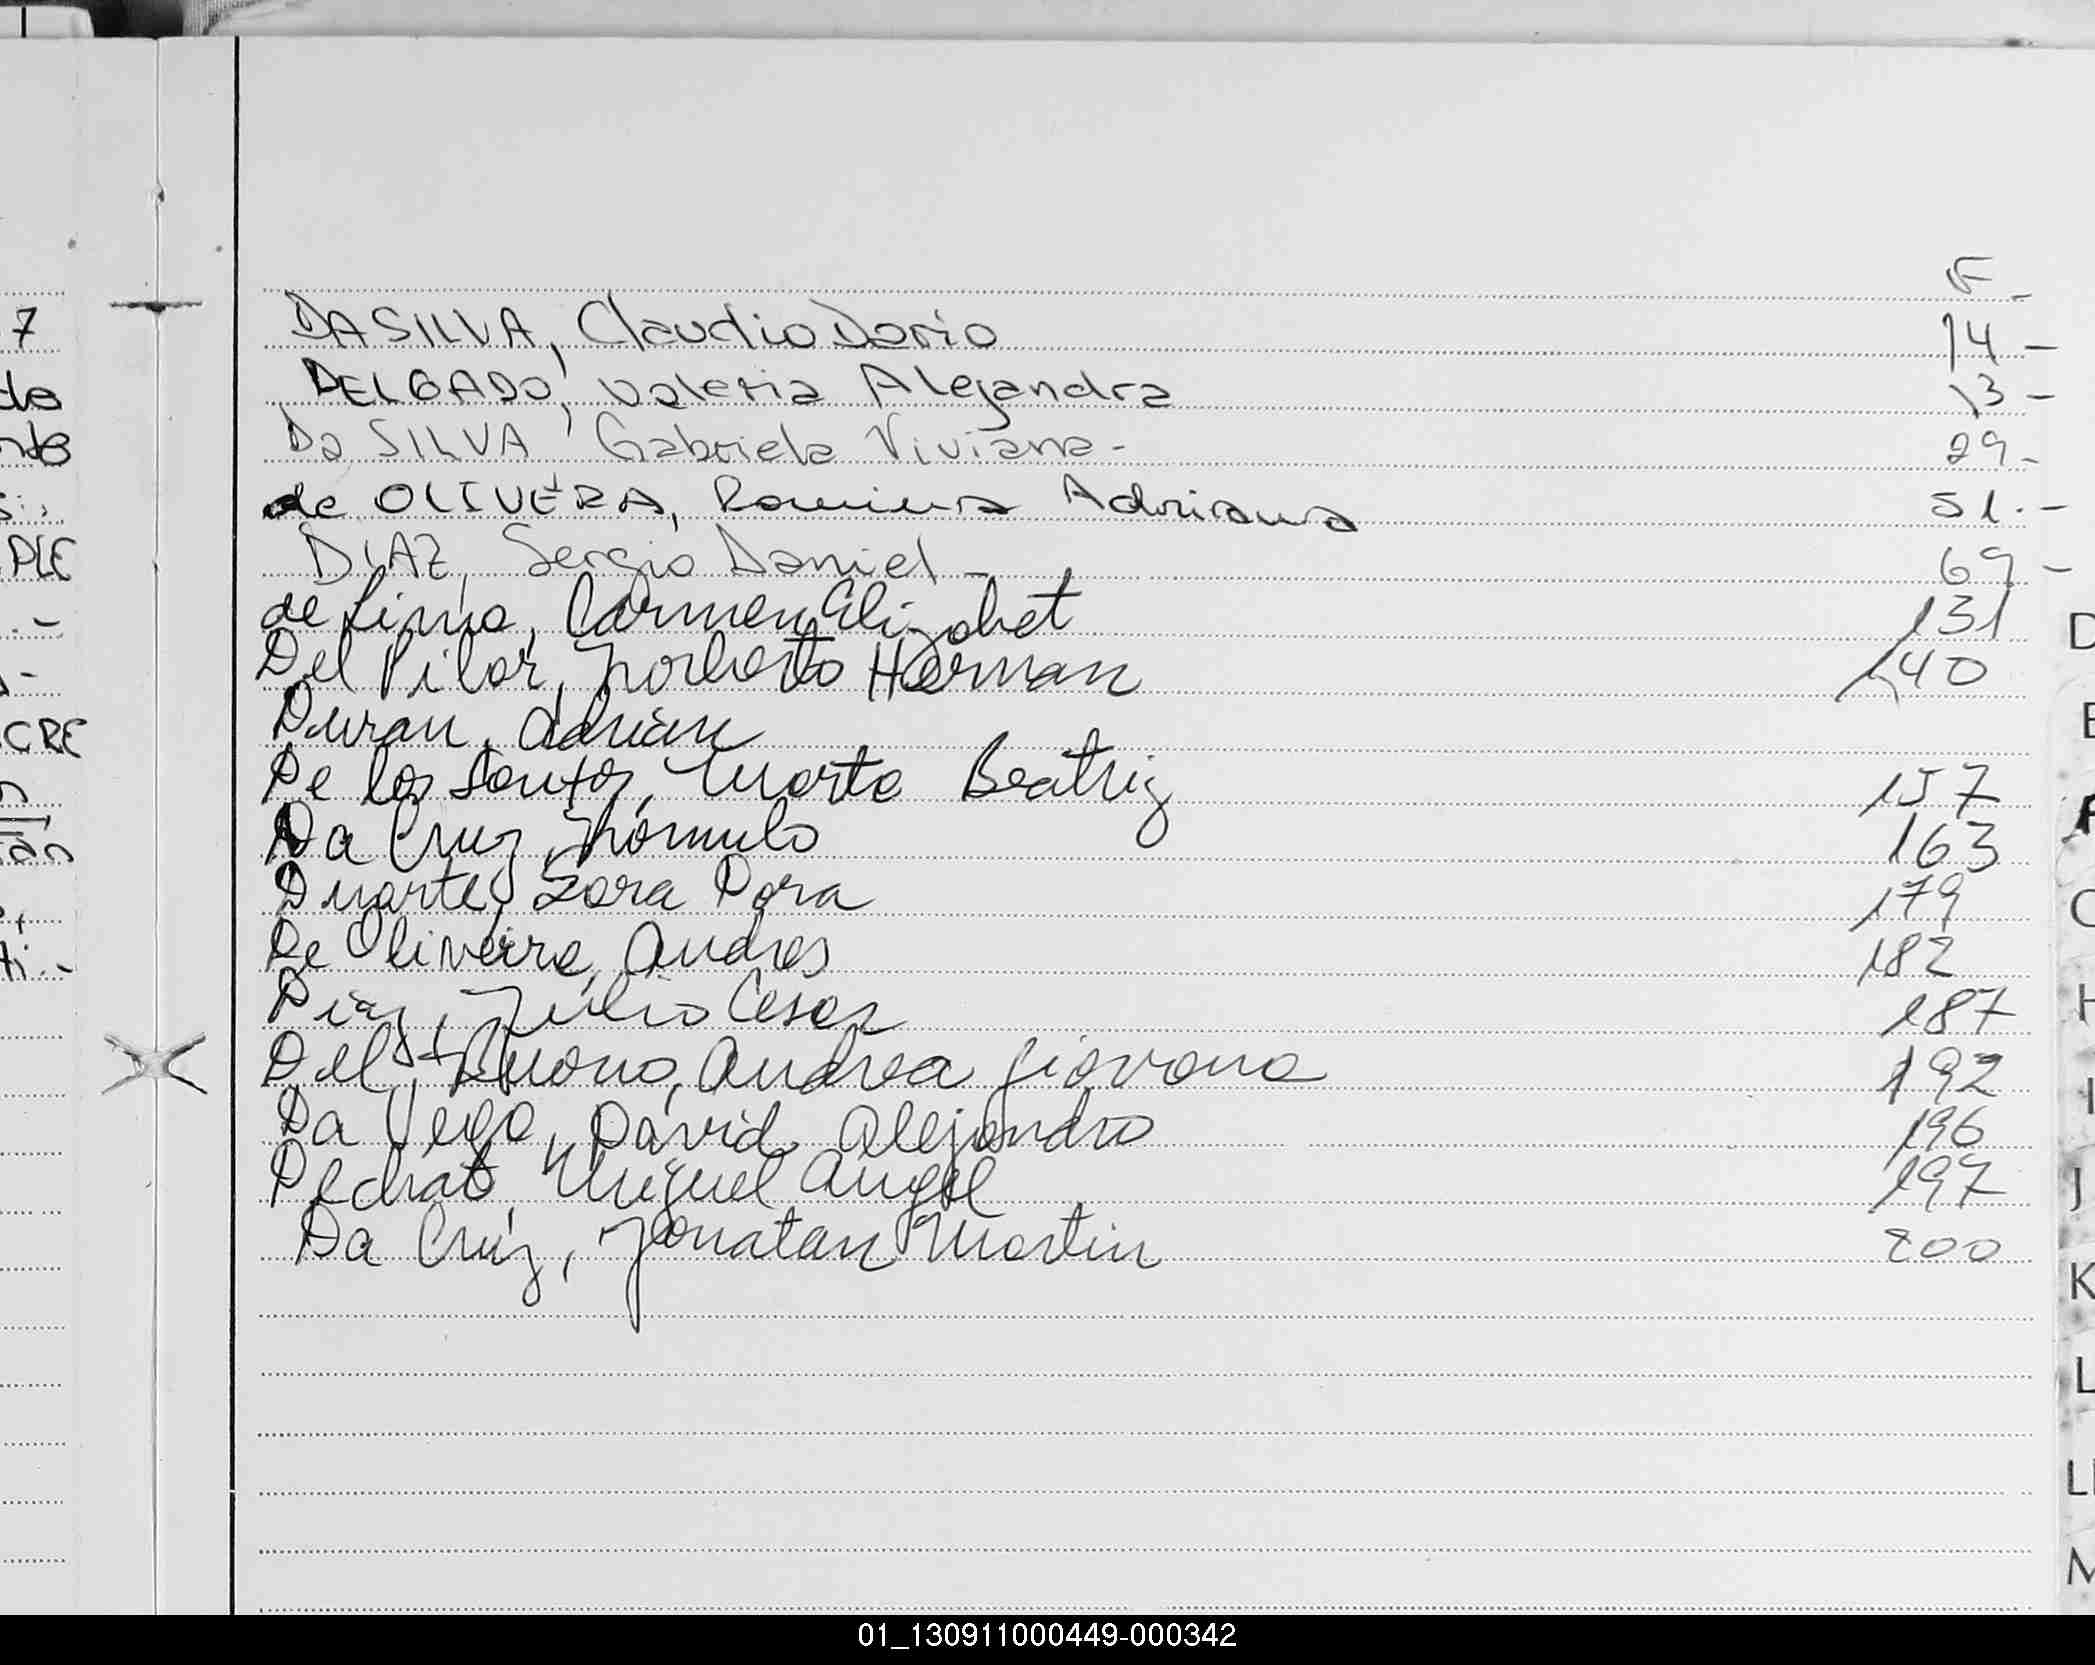 F-
DA SILVA, Claudio Dario 14-
DELGADO, Valeria Alejandra 13-
Da SILVA Gabriela Viviana- 29-
de OLIVERA, Romina Adriana 51.-
DIAZ, Sergio Daniel- 69-
de Lima, Carmen Elizabet 131
Del Pilar, Norberto Hernan 140
Duran, Adrián
De los Santos, Marta Beatriz 157
Da Cruz, Rómulo 163
Duarte, Sara Dora 179
De Oliveira, Andres 182
Diaz, Julio Cesar 187
Del Buono, Andrea Giovana 192
Da Vega, David Alejandro 196
Miguel Angel 197
Da Cruz, Jonatan Martin 200
7
do
PLE
CRE
D
E
F
G
H
I
J
K
L
LL
M
01_130911000449-000342